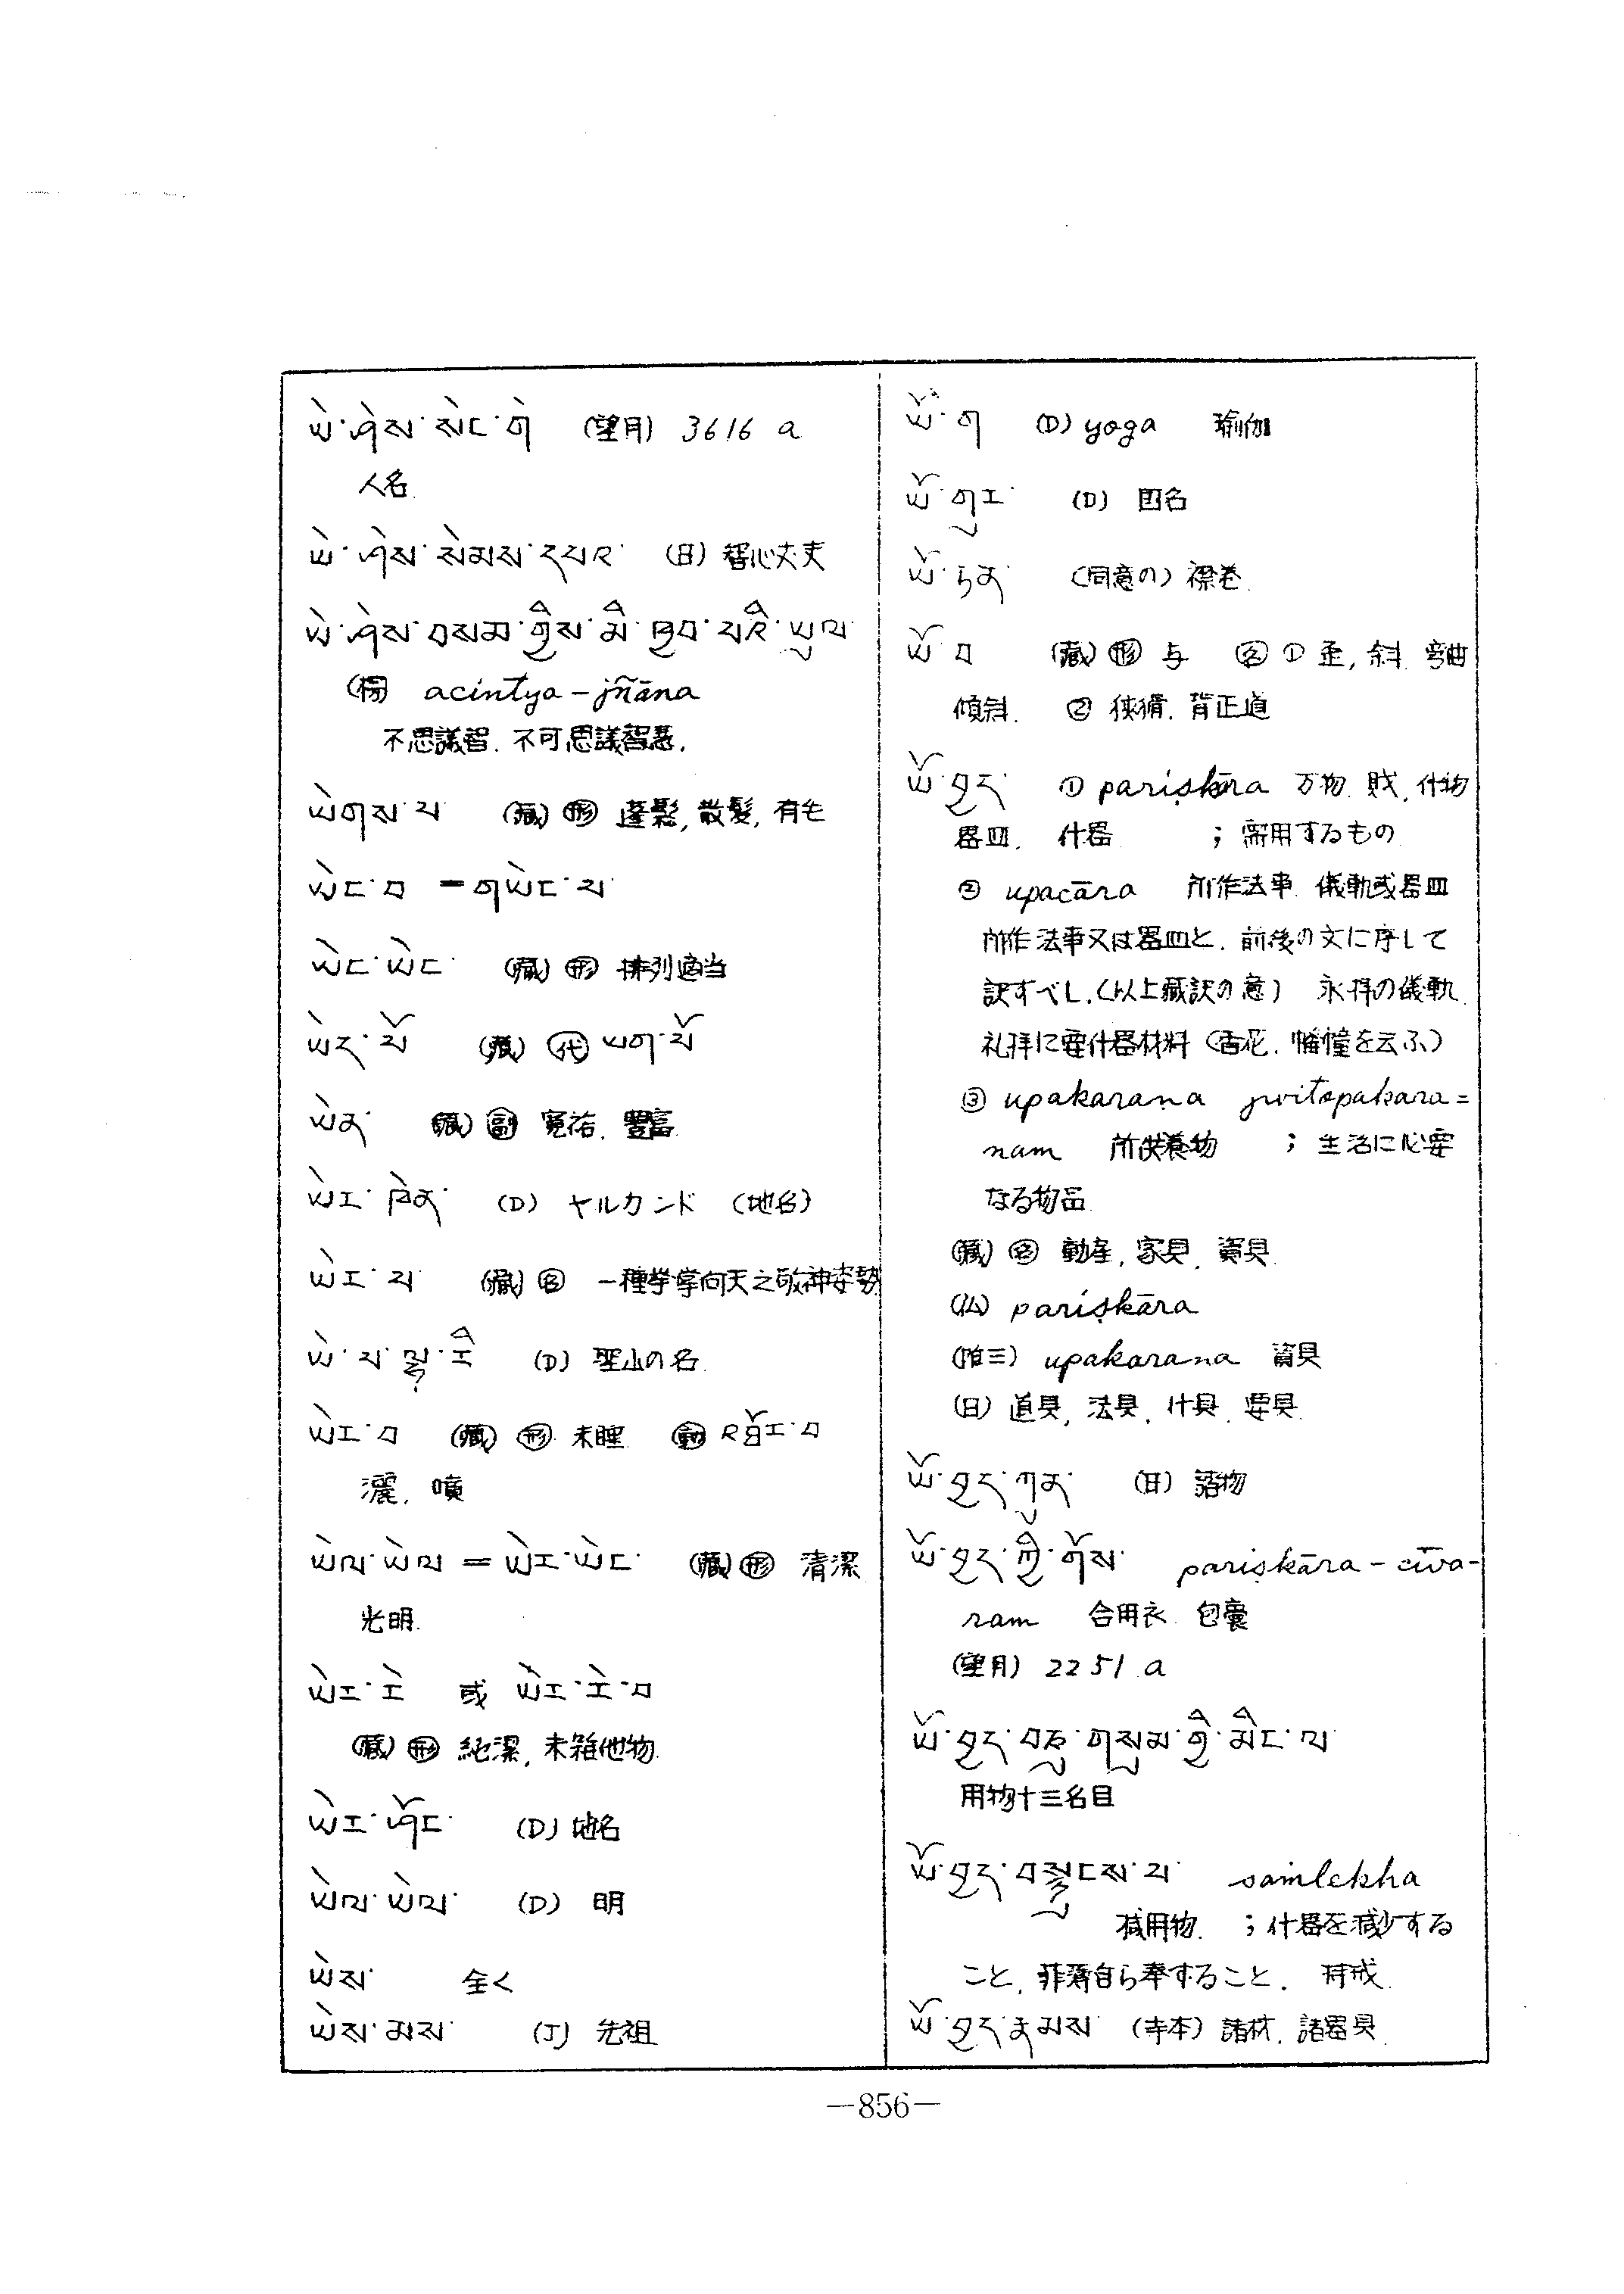 ཡེ་ཤེས་སེང་གེ (望月) 3616 a
人名.
ཡེ་ཤེས་སེམས་དཔར་ (日) 智心丈夫
ཡེ་ཤེས་བསམ་གྱིས་མི་ཁྱབ་པའི་ཡུལ་
acintya-jñāna
不思議智. 不可思議智慧.
ཡེགས་པ (藏) 形 蓬鬆, 散髮, 有毛
ཡེང་བ = གཡེང་བ་
ཡེང་ཡེང་ (藏) 形 排列適当
ཡེད་པོ (藏) 代 ཡག་པོ
ཡེན་ (藏) 副 寛裕. 豐富
ཡེར་ཁེན་ (D) ヤルカンド (地名)
ཡེར་པ (藏) 名 一種挙掌向天之敬神姿勢
(D) 聖山の名.
ཡེར་བ (藏) 形 未睡 動 འབོར་བ
灑, 噴
ཡེལ་ཡེལ = ཡེར་ཡེར་ (藏) 形 清潔
光明.
ཡེར་རེ 或 ཡེར་རེ་བ
(藏) 形 純潔, 未雑他物.
ཡེར་ཤོང་ (D) 地名
ཡེལ་ཡེལ་ (D) 明
ཡེས་ 全く
ཡེས་མས་ (J) 先祖
ཡོ་ག (D) yoga 瑜伽
ཡོ་གུར་ (D) 国名
ཡོ་ཏན་ (同意の)
ཡོ་བ (藏) 形 与 名 ① 歪, 斜. 弯曲
傾斜. ② 狭猾. 背正道
ཡོ་བྱད་ ① pariṣkāra 万物. 財, 什物
器皿. 什器 ; 需用するもの
② upacāra 所作法事. 儀軌或器皿
所作法事又は器皿と. 前後の文に序して
訳すべし. (以上藏訳の意) 永拝の儀軌
礼拝に要什器材料 (香花. 幡幢を云ふ)
③ upakaraṇa jivitopakara=
nam 所供養物 ; 生活に必要
なる物品.
(藏) 名 動産, 家具, 資具.
(仏) pariṣkāra
(唯三) upakarana 資具
(日) 道具, 法具, 什具. 要具.
ཡོ་བྱད་ཀུན་ (日) 諸物
ཡོ་བྱད་ཀྱི་གོས་ pariṣkāra-cīva-
ram 合用衣. 包嚢
(望月) 2251 a
ཡོ་བྱད་བཅུ་གསུམ་གྱི་མིང་ལ
用物十三名目
ཡོ་བྱད་བསྙུངས་པ་ saṁlekha
減用物. ; 什器を減少する
こと, 菲薄自ら奉ずること.
ཡོ་བྱད་རྣམས་ (寺本) 諸材. 諸器具.
—856—